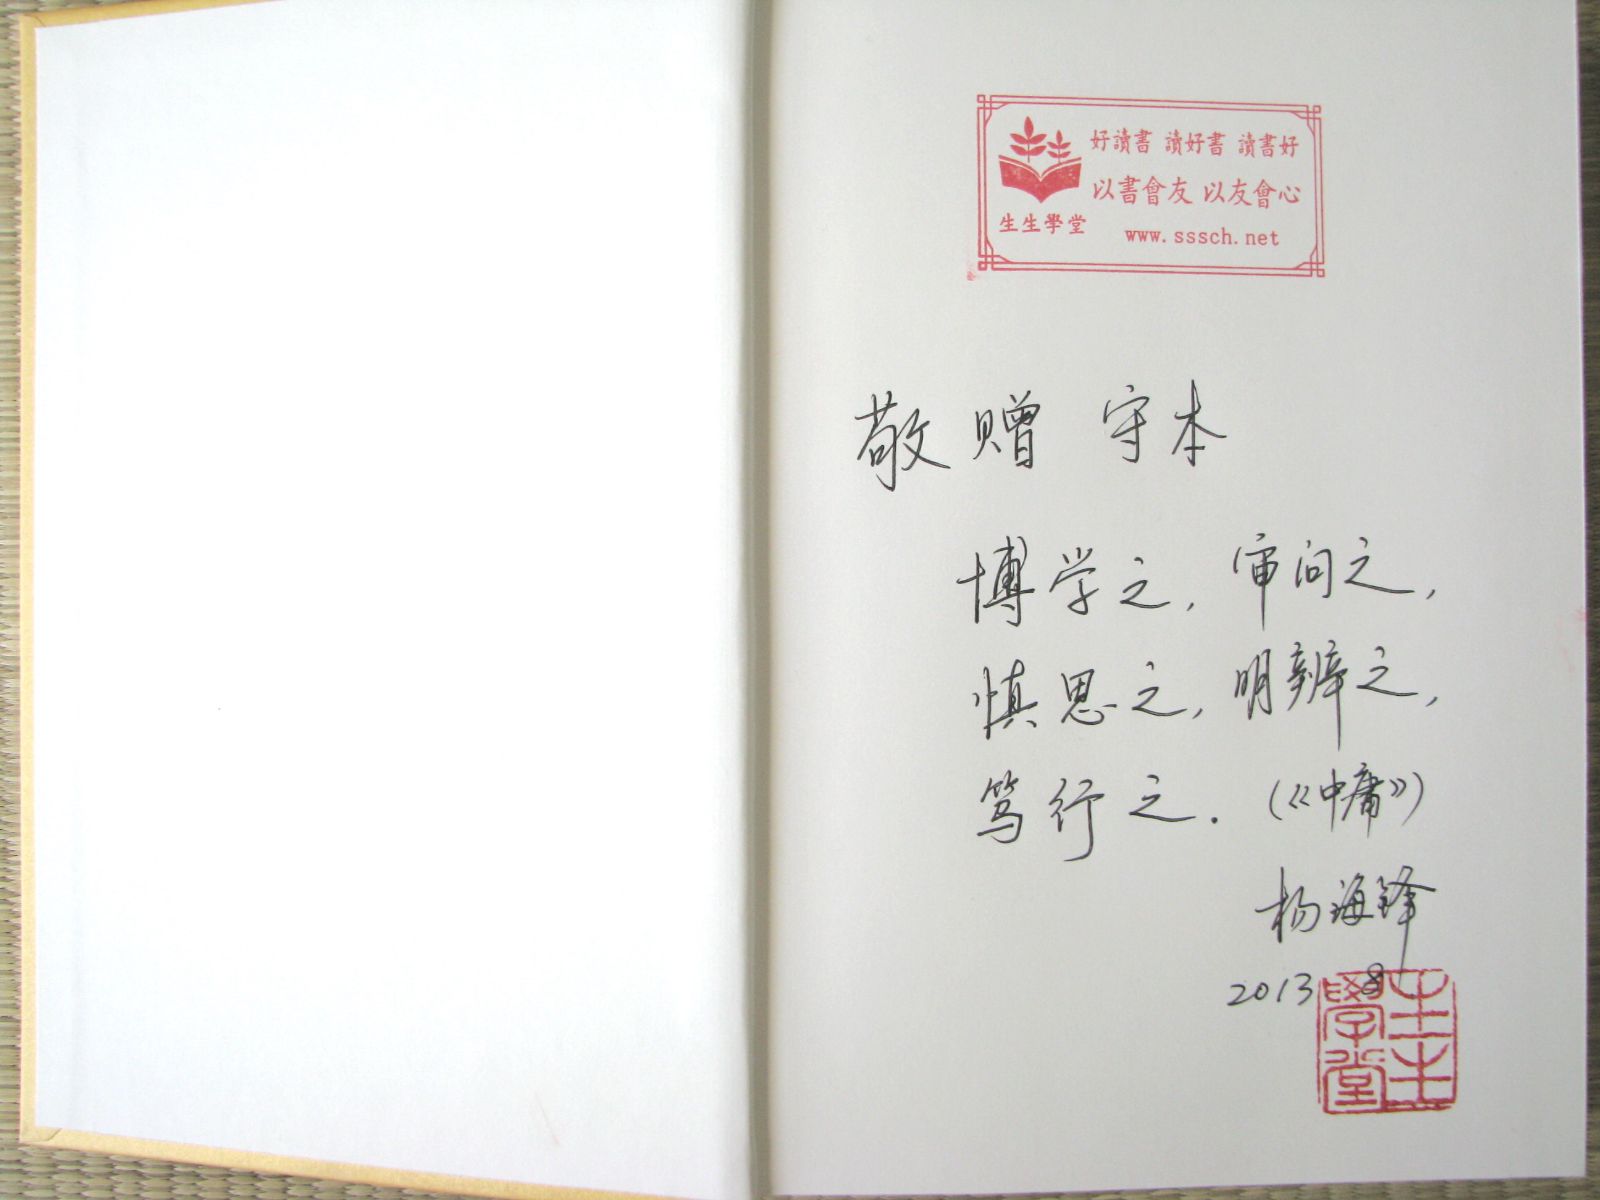 好讀書 讀好書 讀書好
以書會友 以友會心
生生學堂
www.sssch.net
敬赠 守本
博学之，审问之，
慎思之，明辨之，
笃行之．（《中庸》）
杨海锋
2013 8
生生學堂